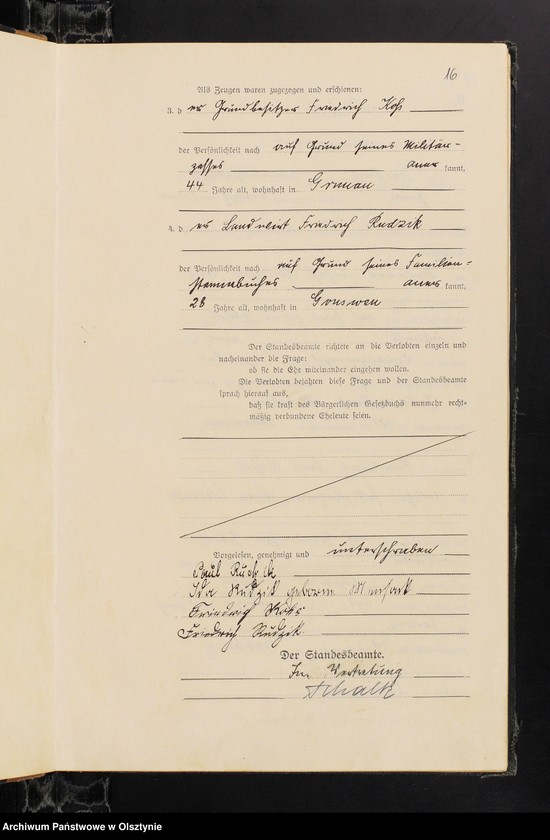 16
Als Zeugen waren zugezogen und erschienen:
3. d er Grundbesitzer Friedrich Koß
der Persönlichkeit nach auf Grund seines Militär-
passes aner kannt,
44 Jahre alt, wohnhaft in
4. d er Landwirt Friedrich Rudzik
der Persönlichkeit nach auf Grund seines Familien-
stammbuches aner kannt,
28 Jahre alt, wohnhaft in Gonswen
Der Standesbeamte richtete an die Verlobten einzeln und
nacheinander die Frage:
ob sie die Ehe miteinander eingehen wollen.
Die Verlobten bejahten diese Frage und der Standesbeamte
sprach hierauf aus,
daß sie kraft des Bürgerlichen Gesetzbuchs nunmehr recht-
mäßig verbundene Eheleute seien.
Vorgelesen, genehmigt und unterschrieben
Paul Rudzik
Ida Rudzik geborene
Friedrich Koß
Friedrich Rudzik
Der Standesbeamte.
In Vertretung
Schalk
Archiwum Państwowe w Olsztynie